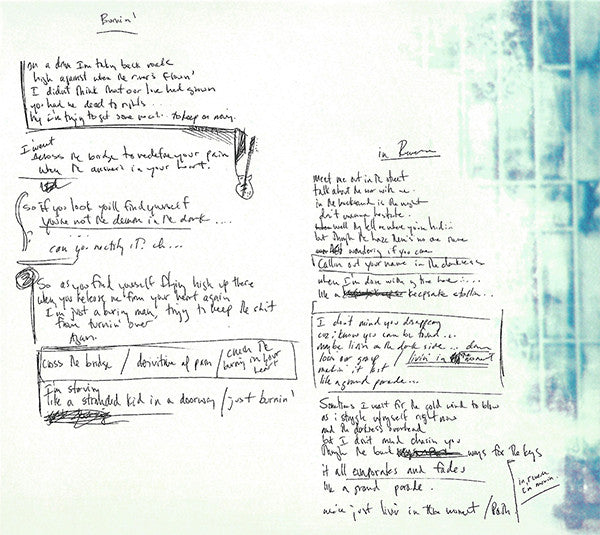 Burnin'
on a dm I'm taking back roads
high against when the river's flowin'
I didn't think that our love had grown
you had me dead to rights...
try to get some to keep on movin.
I went
across the bridge to redefine your pain
when the answer's in your heart.
So if you look you'll find yourself
you're not the demon in the dark ....
can you rectify it? ch...
So as you find yourself flying high up there
when you release me from your heart again
I'm just a boring man, trying to keep the shit
from turnin' over
Again
cross the bridge / derivitive of pain / check the
burning in your
heart
I'm starving
like a stranded kid in a doorway / just burnin'
in
meet me out in the street
talk about the war with me
in the backyard in the night
don't wanna hesitate
tell me where you're hidin
but through the haze there's no one name
wondering if you care
Callin out your name in the darkness
when I'm done with time
like a keepsake
I don't mind you disappearing
cuz i know you can be found...
maybe livin on the dark side... down
lose our grasp / livin in moment
makin' it last
like a grand parade...
Sometimes I wait for the cold wind to blow
as i struggle w/ myself right now
and the darkness overhead
but I don't mind chasin you
through the back ways for the keys
it all evaporates and fades
like a grand parade.
we're just livin' in this moment / Path